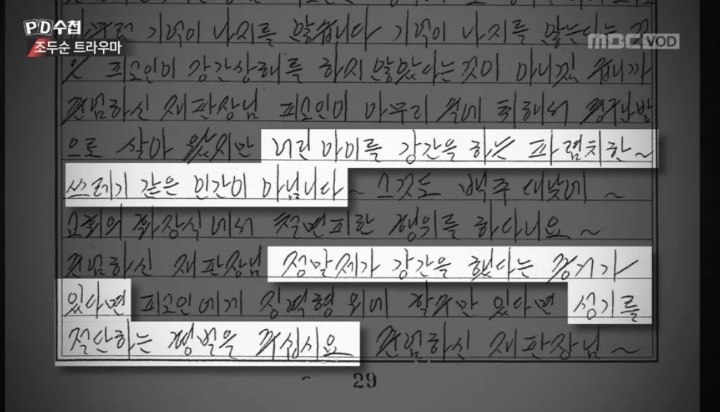 PD수첩
조두순 트라우마
MBC VOD
기억이 나지를 않습니다 기억이 나지를 않는다는 것
은 피고인이 강간상해를 하지 않았다는것이 아니겠습니까
존엄하신 재판장님 피고인이 아무리 술에 취해서
으로 살아 왔지만 어린 아이를 강간을 하는 파렴치한~
쓰레기 같은 인간이 아닙니다~ 그것도 백주 대낮에~
교회의 화장실에서 철면피한 행위를 하다니요~
존엄하신 재판장님 정말제가 강간을 했다는 증거가
있다면 피고인에게 징역형 외에 할 수만 있다면 성기를
절단하는 형벌을 주십시요 존엄하신 재판장님~
29